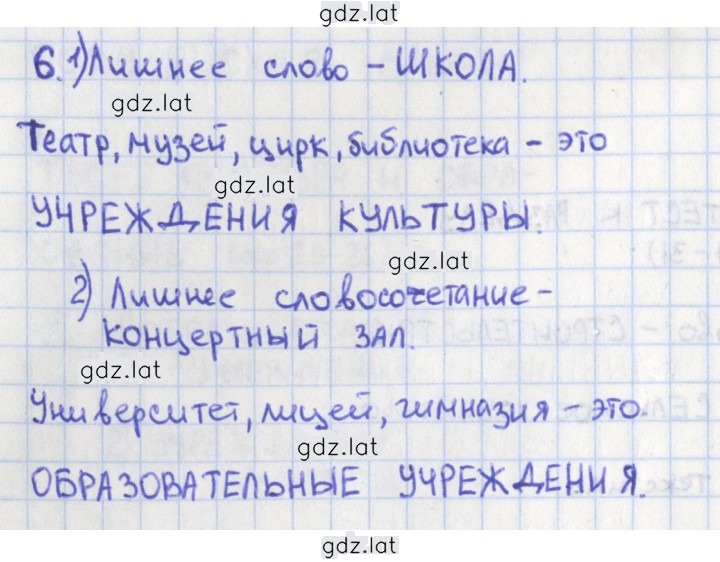 gdz.lat
6. 1) Лишнее слово - ШКОЛА.
gdz.lat
Театр, музей, цирк, библиотека - это
gdz.lat
УЧРЕЖДЕНИЯ КУЛЬТУРЫ.
gdz.lat
2) Лишнее словосочетание -
КОНЦЕРТНЫЙ ЗАЛ.
gdz.lat
Университет, лицей, гимназия - это
gdz.lat
ОБРАЗОВАТЕЛЬНЫЕ УЧРЕЖДЕНИЯ.
gdz.lat